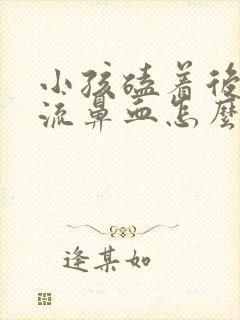 小孩磕着後
流鼻血怎麼
逢某如